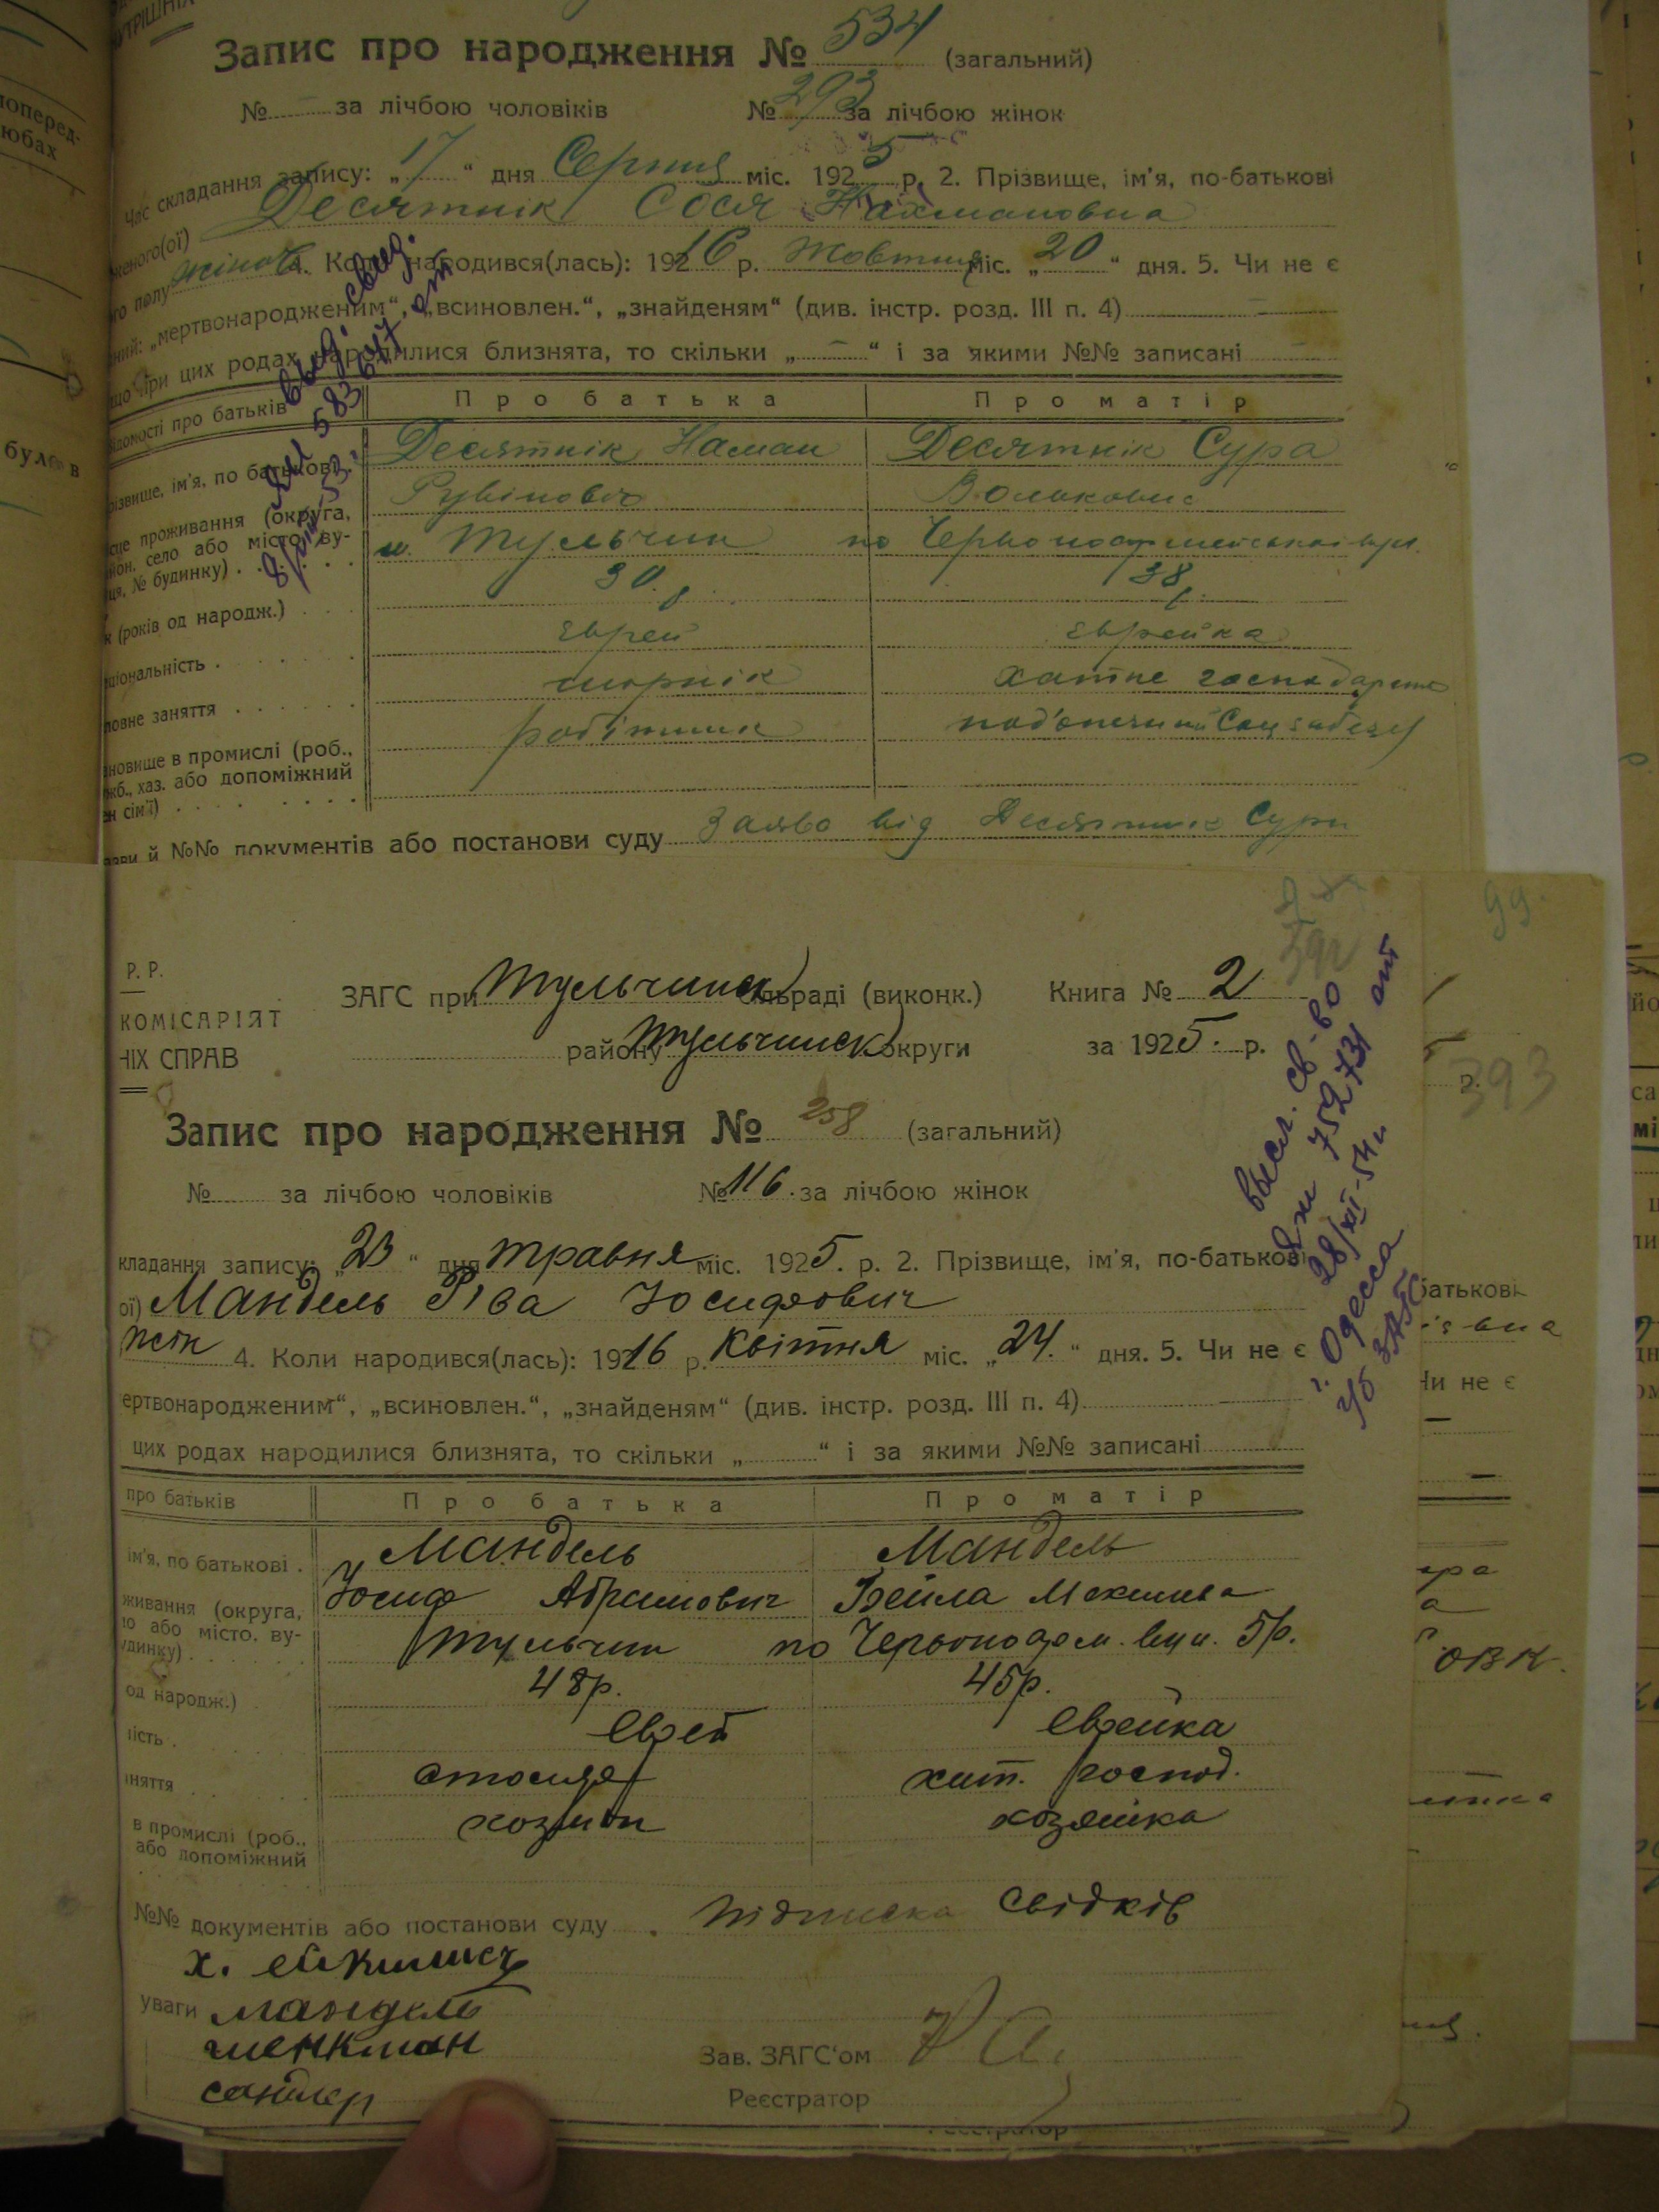 Запис про народження № 534 (загальний)
№ — за лічбою чоловіків № 293 за лічбою жінок
Час складання запису: „17“ дня Серпня міс. 1925 р. 2. Прізвище, ім'я, по-батькові
женого(ої) Десятнік Сося Нахмановна
го полу жіноч 4. Коли народився(лась): 19216 р. Жовтня міс. „20“ дня. 5. Чи не є
ний: „мертвонародженим“, „всиновлен.“, „знайденям“ (див. інстр. розд. III п. 4) —
що при цих родах народилися близнята, то скільки „—“ і за якими №№ записані —
ідомості про батьків Про батька Про матір
різвище, ім'я, по батькові Десятнік Наман Десятнік Сура
Рувінович Вольковна
ісце проживання (округа, м. Тульчин по Червоноармейській вул.
йон, село або місто, ву-
ця, № будинку)
к (років од народж.) 30 р. 38 р.
ціональність еврей еврейка
ловне заняття шорнік хатне господарство
новище в промислі (роб., робітник под'опечний Соцзабезу
жб., хаз. або допоміжний
ен сім'ї)
азви й №№ документів або постанови суду Заява від Десятник Сури
Р. Р.
КОМІСАРІЯТ
НІХ СПРАВ
ЗАГС при Тульчинск сільраді (виконк.) Книга № 2
району Тульчинск округи за 1925. р.
393
99.
Запис про народження № 258 (загальний)
№ за лічбою чоловіків № 116. за лічбою жінок
кладання запису: „23“ дня травня міс. 1925. р. 2. Прізвище, ім'я, по-батькові
ої) Мандель Ріва Йосифович
жін 4. Коли народився(лась): 19216 р. Квітня міс. „24.“ дня. 5. Чи не є
ертвонародженим“, „всиновлен.“, „знайденям“ (див. інстр. розд. III п. 4)
цих родах народилися близнята, то скільки „ “ і за якими №№ записані
высл. св-во
752731 от
28/XII-54 г
г. Одесса
г/б ЗАГС
про батьків Про батька Про матір
ім'я, по батькові Мандель Мандель
Йосиф Абрамович Бейла
живання (округа, Тульчин по Червоноарм. вул. 5р.
ло або місто, ву-
удинку)
од народж.) 48р. 45р.
ість Еврей Еврейка
няття столяр хат. господ.
в промислі (роб., хозяин хозяйка
або допоміжний
№№ документів або постанови суду підписка свідків
уваги Мандель
шенкман
сандлер
Зав. ЗАГС'ом
Реєстратор